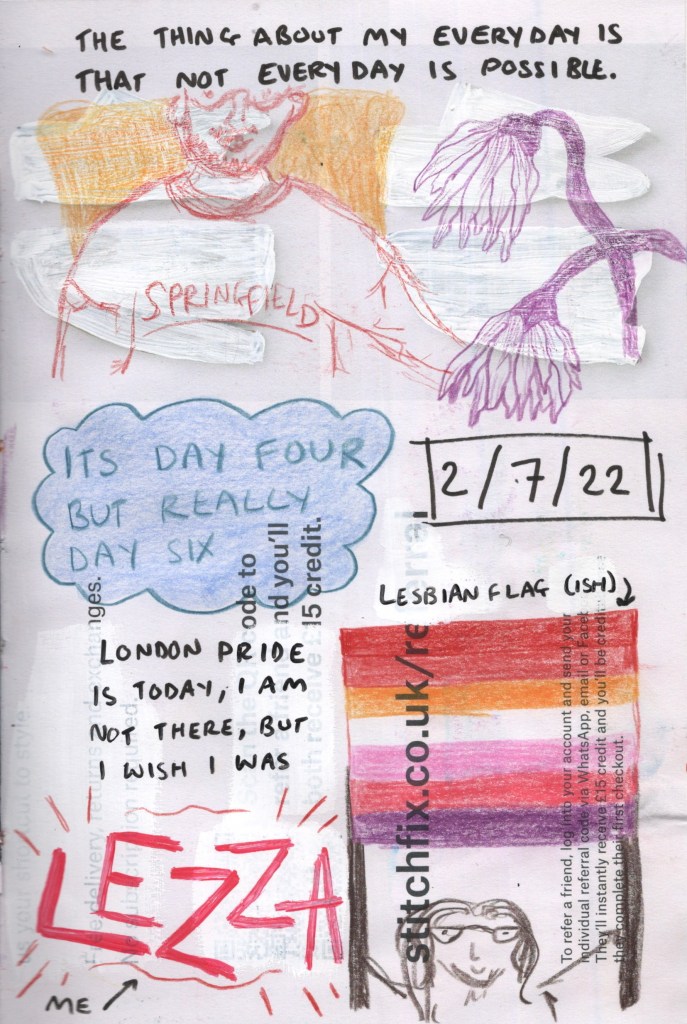 THE THING ABOUT MY EVERYDAY IS
THAT NOT EVERYDAY IS POSSIBLE.
SPRINGFIELD
ITS DAY FOUR
BUT REALLY
DAY SIX
2/7/22
LESBIAN FLAG (ISH)
LONDON PRIDE
IS TODAY, I AM
NOT THERE, BUT
I WISH I WAS
LEZZA
ME
ode to
and you'll
15 credit.
both receive £
Free delivery, returns and exchanges.
No subscription required.
stitchfix.co.uk/referral
To refer a friend, log into your account and send your
individual referral code via WhatsApp, email or Faceb
They'll instantly receive £15 credit and you'll be credit
they complete their first checkout.